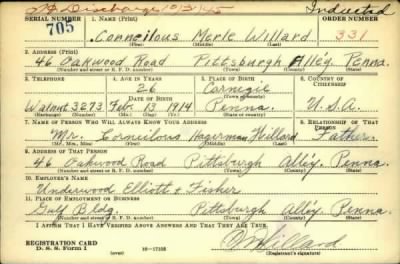 Discharge 10/31/45 Inducted
SERIAL NUMBER 1. NAME (Print) ORDER NUMBER
705 Corneilous Merle Willard 331
(First) (Middle) (Last)
2. ADDRESS (Print)
46 Oakwood Road Pittsburgh Alle'y. Penna.
(Number and street or R. F. D. number) (Town) (County) (State)
3. TELEPHONE 4. AGE IN YEARS 5. PLACE OF BIRTH 6. COUNTRY OF CITIZENSHIP
26 Carnegie
DATE OF BIRTH
Walnut 3273 Feb. 13 1914 Penna. U.S.A.
(Exchange) (Number) (Mo.) (Day) (Yr.) (State or country)
7. NAME OF PERSON WHO WILL ALWAYS KNOW YOUR ADDRESS 8. RELATIONSHIP OF THAT PERSON
Mr. Corneilous Hagerman Willard Father
(Mr., Mrs., Miss) (First) (Middle) (Last)
9. ADDRESS OF THAT PERSON
46 Oakwood Road Pittsburgh Alle'y. Penna.
(Number and street or R. F. D. number) (Town) (County) (State)
10. EMPLOYER'S NAME
Underwood Elliott & Fisher
11. PLACE OF EMPLOYMENT OR BUSINESS
Gulf Bldg. Pittsburgh Alle'y. Penna.
(Number and street or R. F. D. number) (Town) (County) (State)
I AFFIRM THAT I HAVE VERIFIED ABOVE ANSWERS AND THAT THEY ARE TRUE.
REGISTRATION CARD
D. S. S. Form 1 (over) 16-17105 (Registrant's signature)